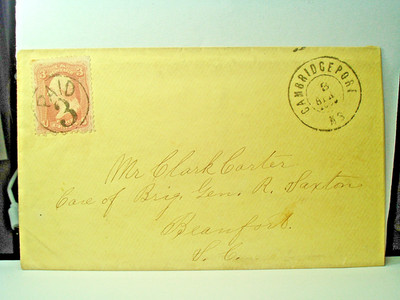 3
3
PAID
3
CAMBRIDGEPORT
8
Mr Clark Carter
Care of Brig. Gen. R. Saxton
Beaufort.
S. C.